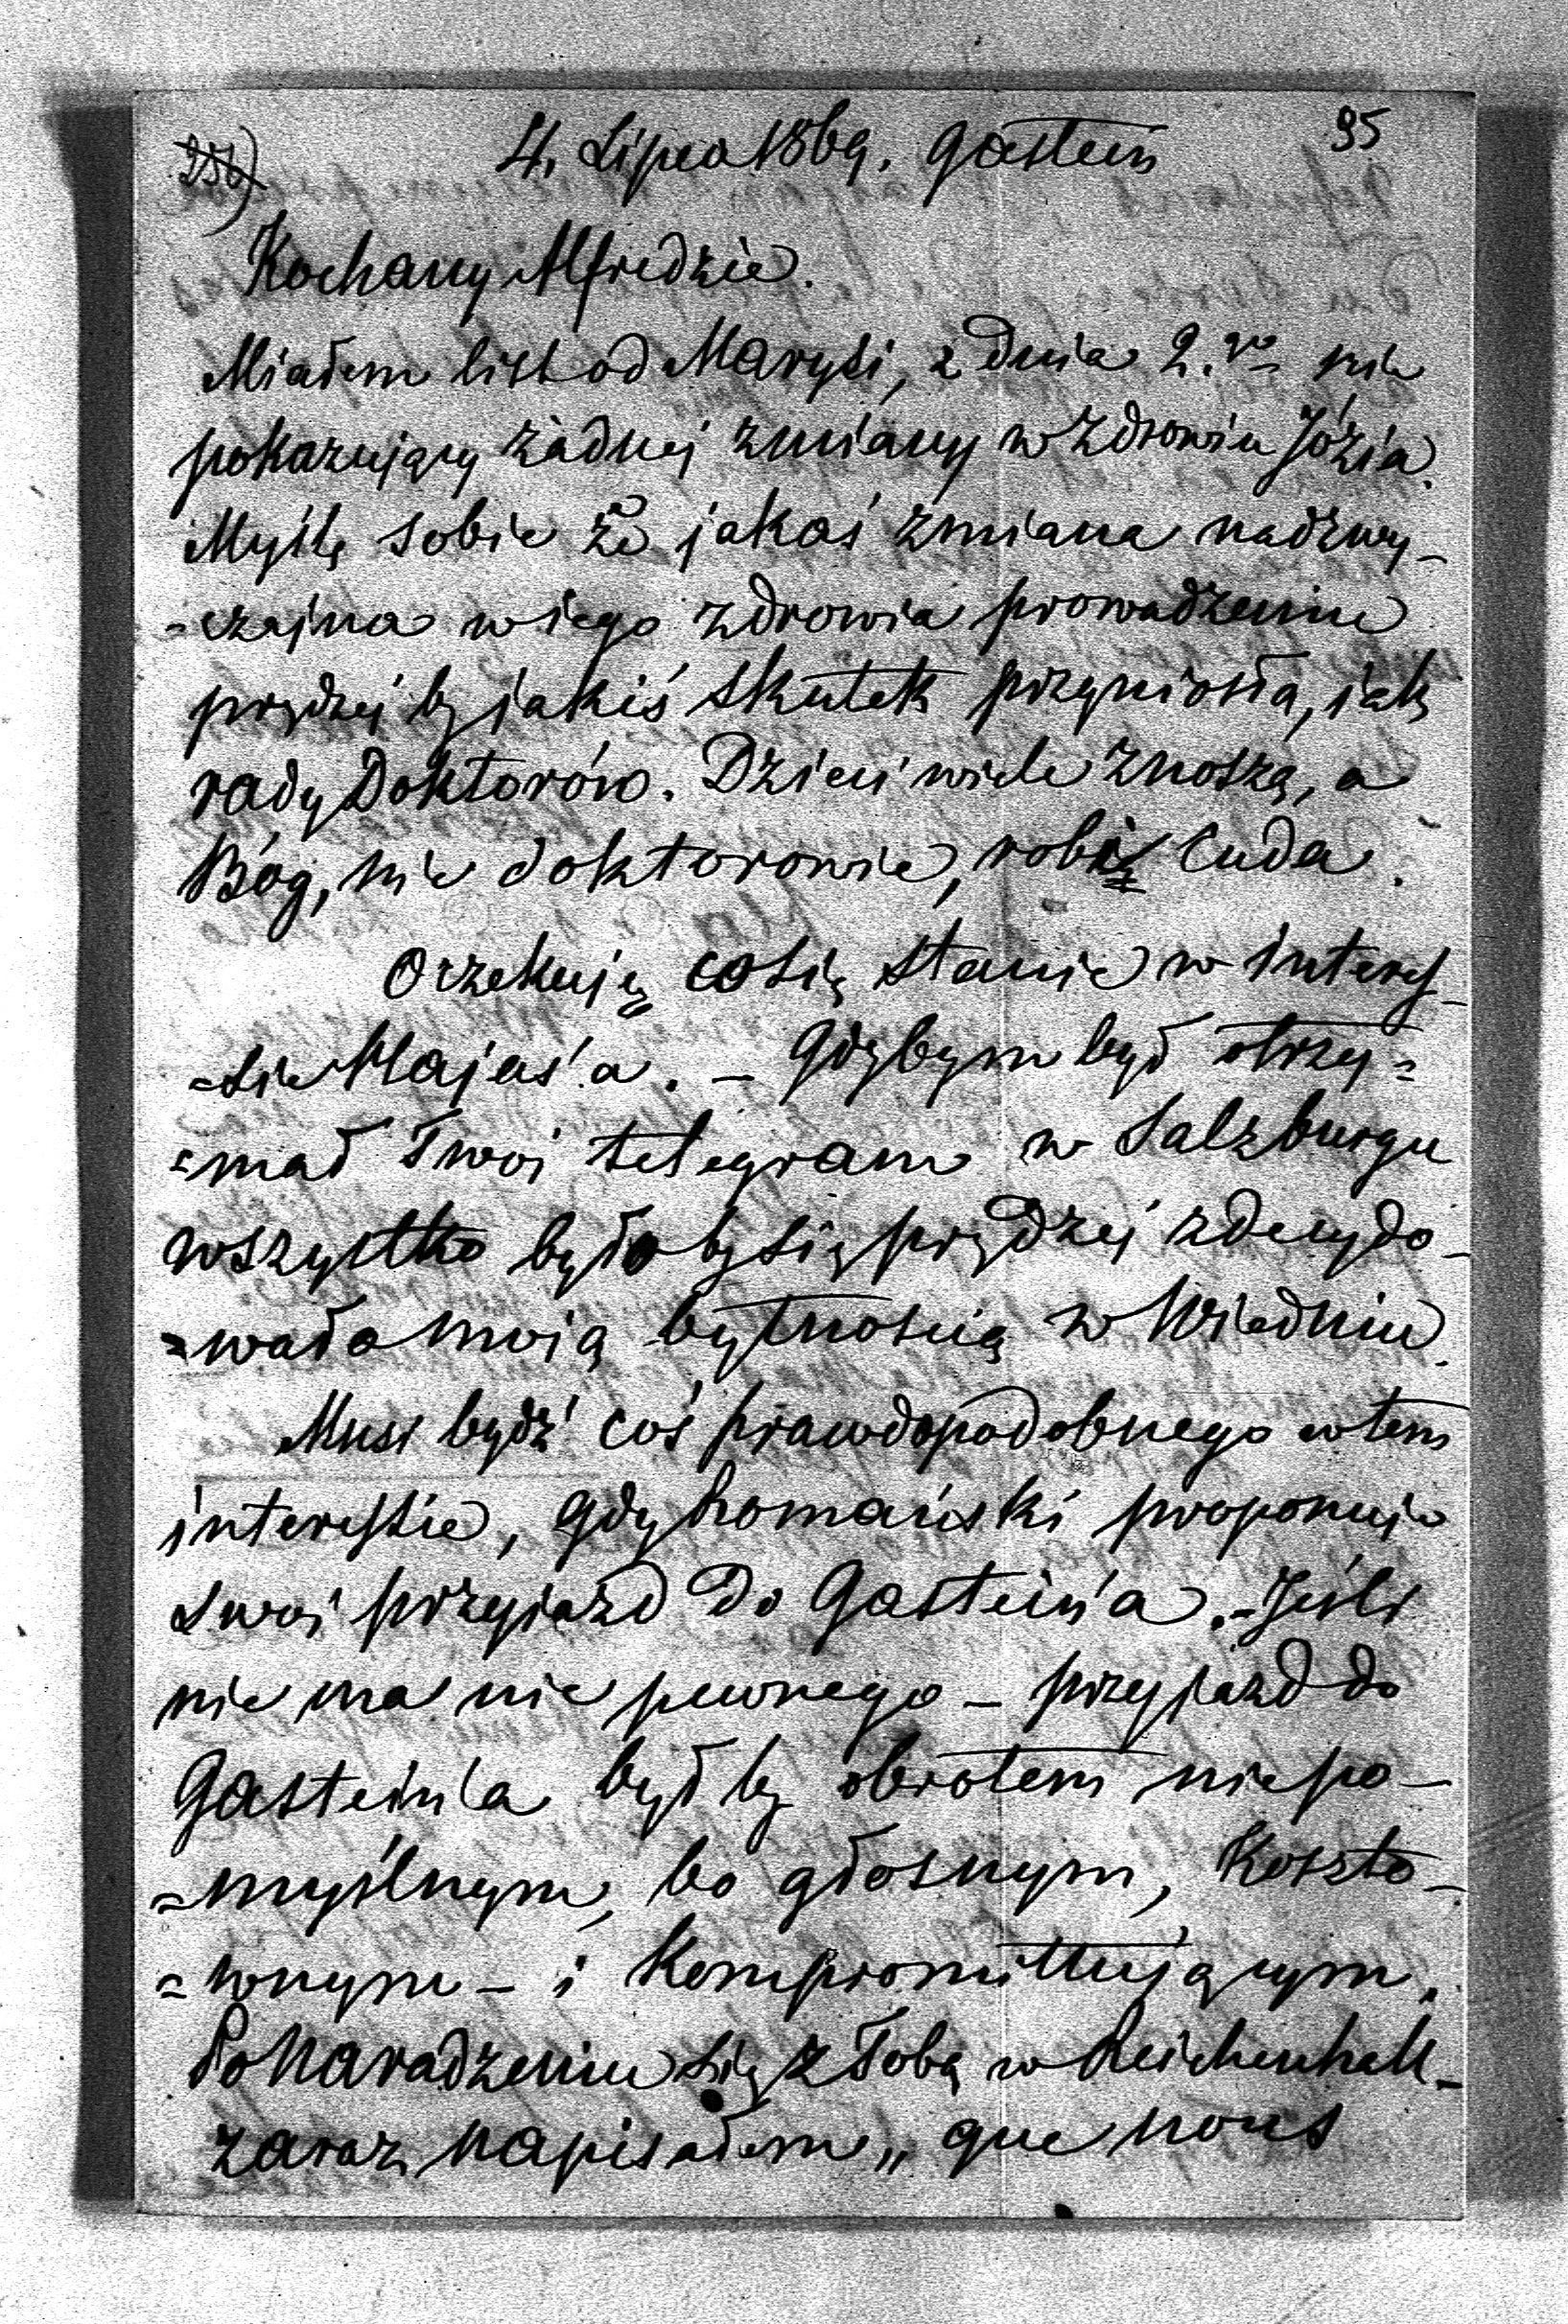 95
4. Lipca 1869. Gastein
Kochany Alfredzie.
Miałem list od Marysi, z dnia 2.go nie
pokazujący żadnej zmiany w zdrowiu Józia.
Myślę sobie że jakaś zmiana nadzwy-
-czajna w iego zdrowia prowadzeniu
prędzej by jakiś skutek przyniosła, jak
rady Doktorów. Dzieci wiele znoszą, a
Bóg, nie doktorowie, robią cuda.
Oczekuję co się stanie w interes-
-sie Majaś'a. – Gdybym był otrzy=
=mał Twoi telegram w Salzburgu
wszystko było by się prędzej zdecydo-
=wało moią bytnością w Wiedniu.
Musi bydź coś prawdopodobnego w tem
interessie, gdy Romański proponuje
swoi przyjazd do Gastein'a. – Jeśli
nie ma nic pewnego – przyjazd do
Gastein'a był by obrotem niepo-
=myślnym, bo głosnym, koszto-
=wnym – i kompromittującym.
Po naradzeniu się z Tobą w Reichenhall-
zaraz napisałem „que nous